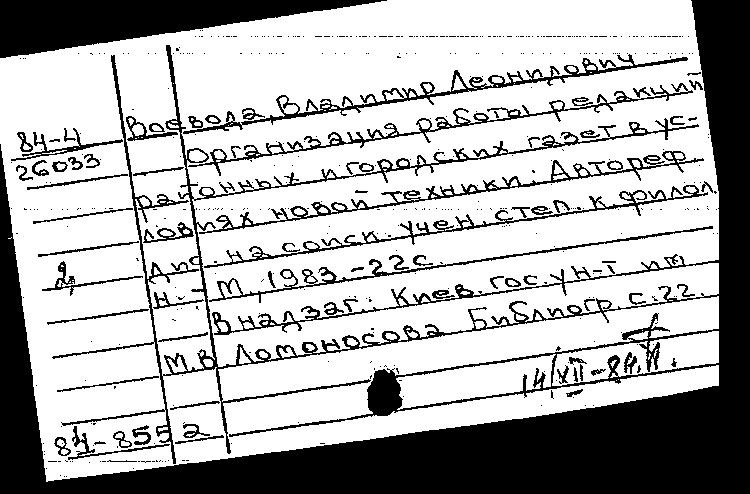 Воевода, Владимир Леонидович
84-4
26033
Организация работы редакций
районных и городских газет в ус-
ловиях новой техники: Автореф.
дис. на соиск. учен. степ. к. филол.
н. - М., 1983. - 22 с.
В надзаг.: Киев. гос. ун-т им
М.В. Ломоносова Библиогр с. 22.
14/XII-84
84-8552